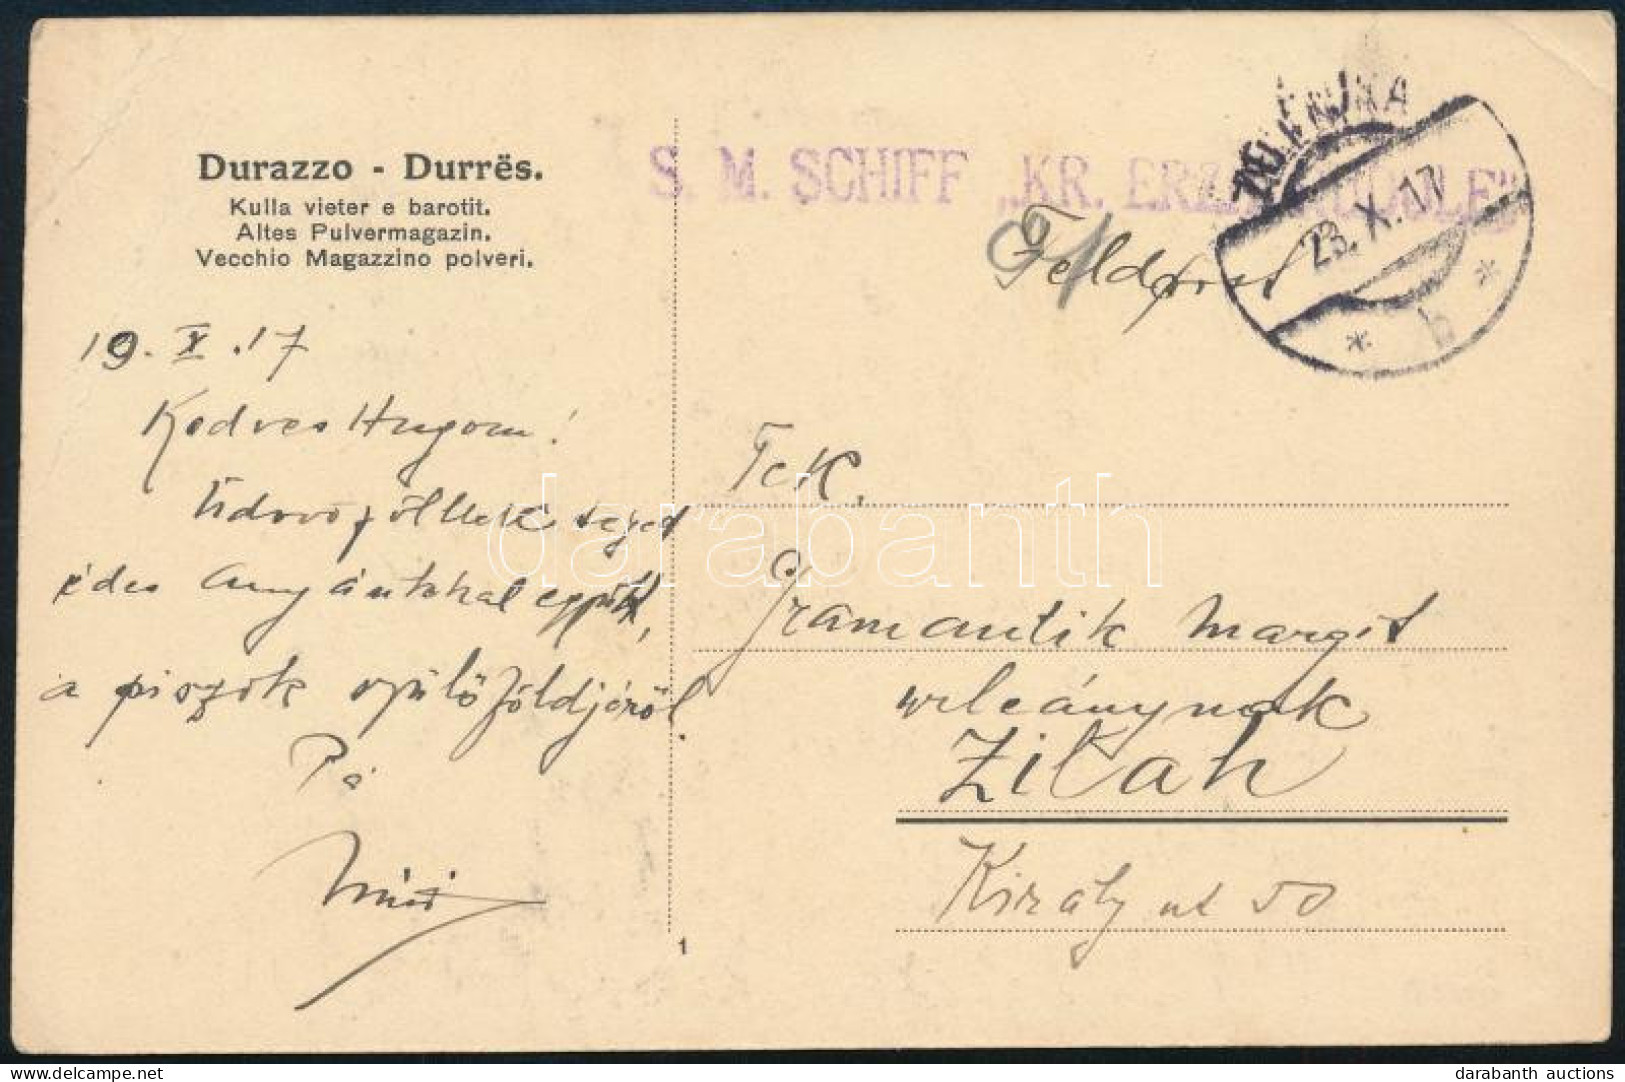 Durazzo - Durrës.
Kulla vieter e barotit.
Altes Pulvermagazin.
Vecchio Magazzino polveri.
S. M. SCHIFF „KR. ERZH. RUDOLF"
ZELENIKA
23. X. 17
* b *
Feldpost
91
19. X. 17
Kedves Hugom!
Üdvözöllek téged
édes Anyántokkal együtt,
a piszok szülőföldjéről.
Pá
Tek.
Gramantik Margit
urleánynak
Zilah
Király ut 50
1
darabanth
darabanth auctions
delcampe.net